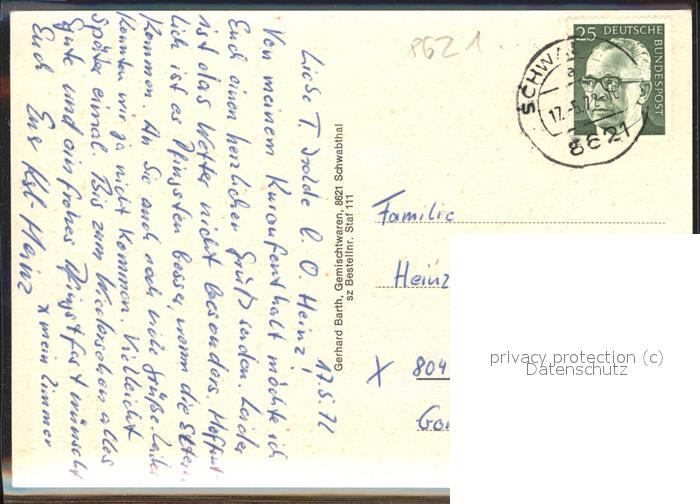 8621
17.5.72
Liebe T. Isolde l. O. Heinz!
Von meinem Kuraufenthalt möchte ich
Euch einen herzlichen Gruß senden. Leider
ist das Wetter nicht besonders. Hoffent-
lich ist es Pfingsten besser, wenn die Eltern
kommen. An Sie auch noch viele Grüße. Leider
konnten wir ja nicht kommen. Vielleicht
später einmal. Bis zum Wiedersehen alles
Gute und ein frohes Pfingstfest wünscht
Euch Eure Heinz
x mein Zimmer
Gerhard Barth, Gemischtwaren, 8621 Schwabthal
sz Bestellnr. Staf 111
25 DEUTSCHE
BUNDESPOST
SCHWA
a
17.-5.72
8621
Familie
Heinz
X 804
privacy protection (c)
Datenschutz